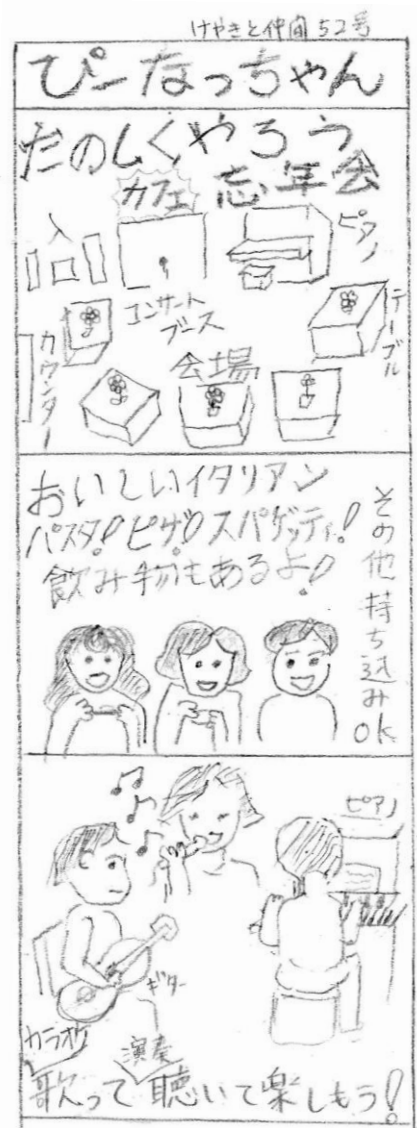 けやきと仲間52号
ぴーなっちゃん
たのしくやろう
カフェ 忘年会
ピアノ
コンサート
ブース
テーブル
カウンター
会場
おいしいイタリアン
パスタ!ピザ!スパゲッティ!
飲み物もあるよ!
その他持ち込みok
ピアノ
ギター
カラオケ
演奏
歌って聴いて楽しもう!